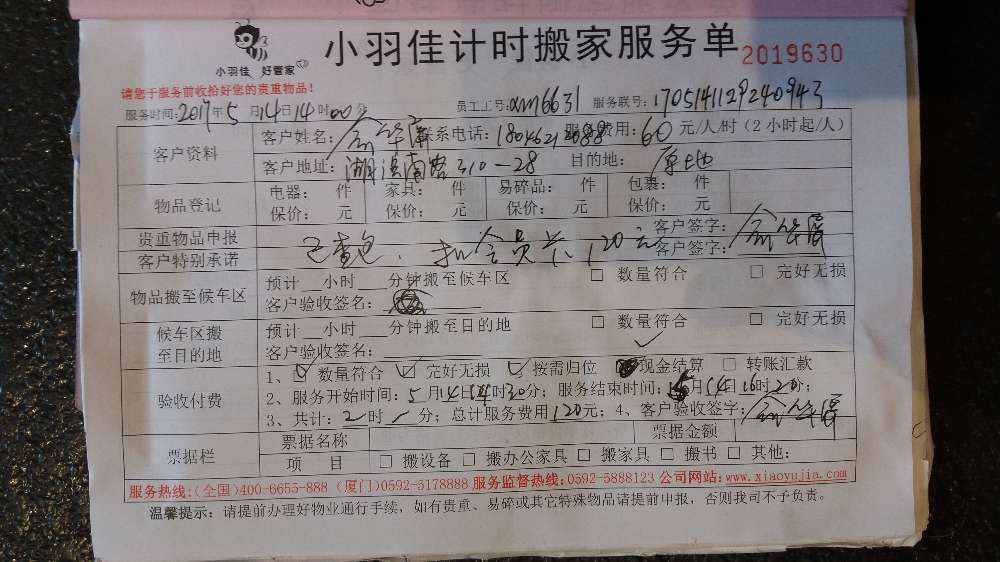 小羽佳 好管家
小羽佳计时搬家服务单 2019630
请您于服务前收拾好您的贵重物品!
服务时间:2017年5月14日14时00分 员工工号:xm6631 服务联号:1705141129240943
客户资料 客户姓名: 联系电话: 服务费用:60元/人/时(2小时起/人)
客户地址: 湖滨南路310-28 目的地: 原地
物品登记 电器: 件 家具: 件 易碎品: 件 包裹: 件
保价: 元 保价: 元 保价: 元 保价: 元
贵重物品申报 客户签字:
客户特别承诺 已查包. 扣会员卡120元 客户签字:
物品搬至候车区 预计__小时___分钟搬至候车区 □ 数量符合 □ 完好无损
客户验收签名:
候车区搬至目的地 预计__小时___分钟搬至目的地 □ 数量符合 □ 完好无损
客户验收签名:
验收付费 1、☑ 数量符合 ☑ 完好无损 ☑ 按需归位 现金结算 □ 转账汇款
2、服务开始时间:5月14日14时30分;服务结束时间:5月14日16时20分;
3、共计:2时 分;总计服务费用120元;4、客户验收签字:
票据栏 票据名称 票据金额
项 目 □ 搬设备 □ 搬办公家具 □ 搬家具 □ 搬书 □ 其他:
服务热线:(全国)400-6655-888 (厦门)0592-5178888 服务监督热线:0592-5888123 公司网站:www.xiaoyujia.com
温馨提示: 请提前办理好物业通行手续,如有贵重、易碎或其它特殊物品请提前申报,否则我司不予负责。